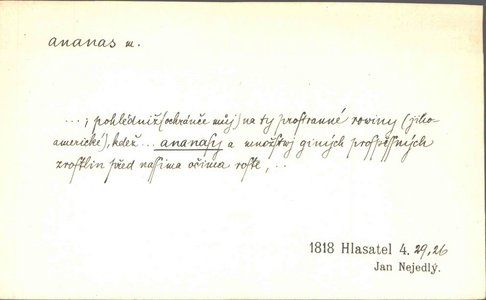 ananas m.
...; pohlédniž (ochránče můj) na ty prostranné rowiny (jiho-
americké), kdež ... ananasy a množstwj giných prospěssných
zrostlin před nassima očima roste, ..
1818 Hlasatel 4. 29,26
Jan Nejedlý.